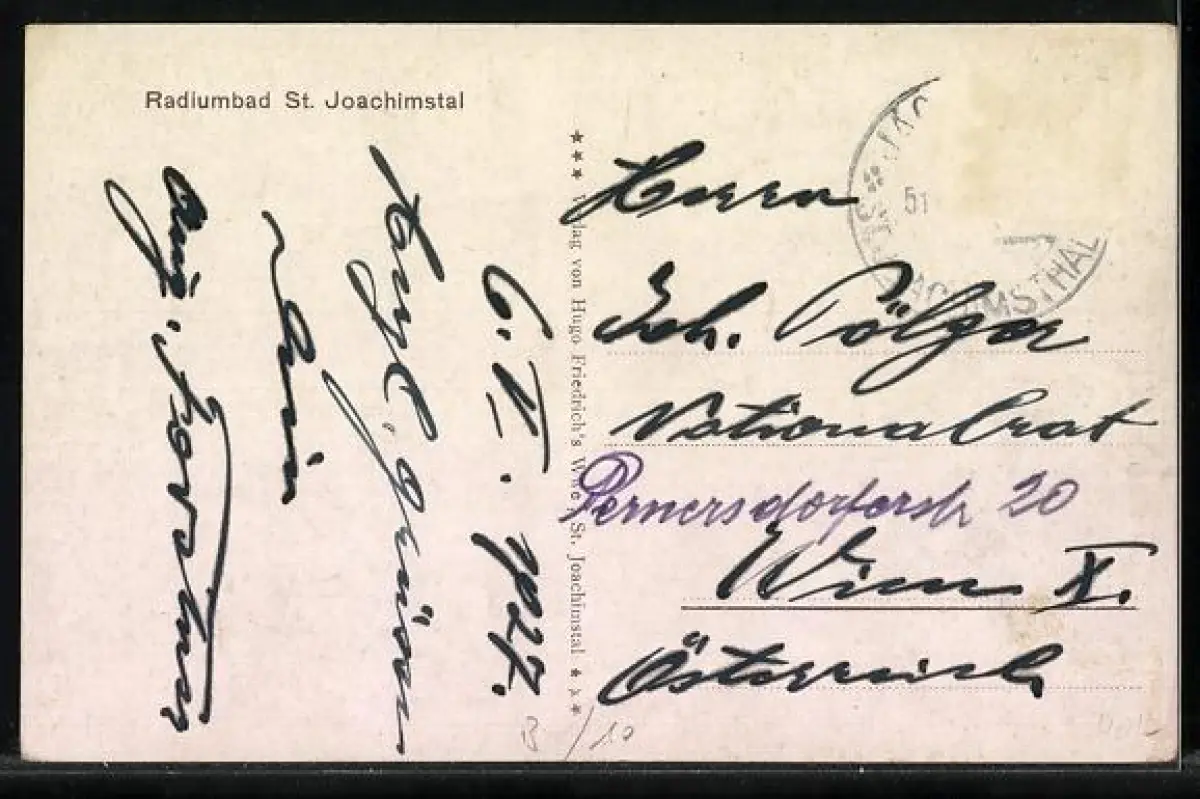 Radiumbad St. Joachimstal
6. VI. 1927.
Herzl. Grüsse
Aug.
*** Verlag von Hugo Friedrich's Wwe., St. Joachimstal ***
ST. JOACHIMSTHAL
Herrn
Joh. Pölzer
Nationalrat
Pernersdorferstr 20
Wien X.
Österreich
B/10